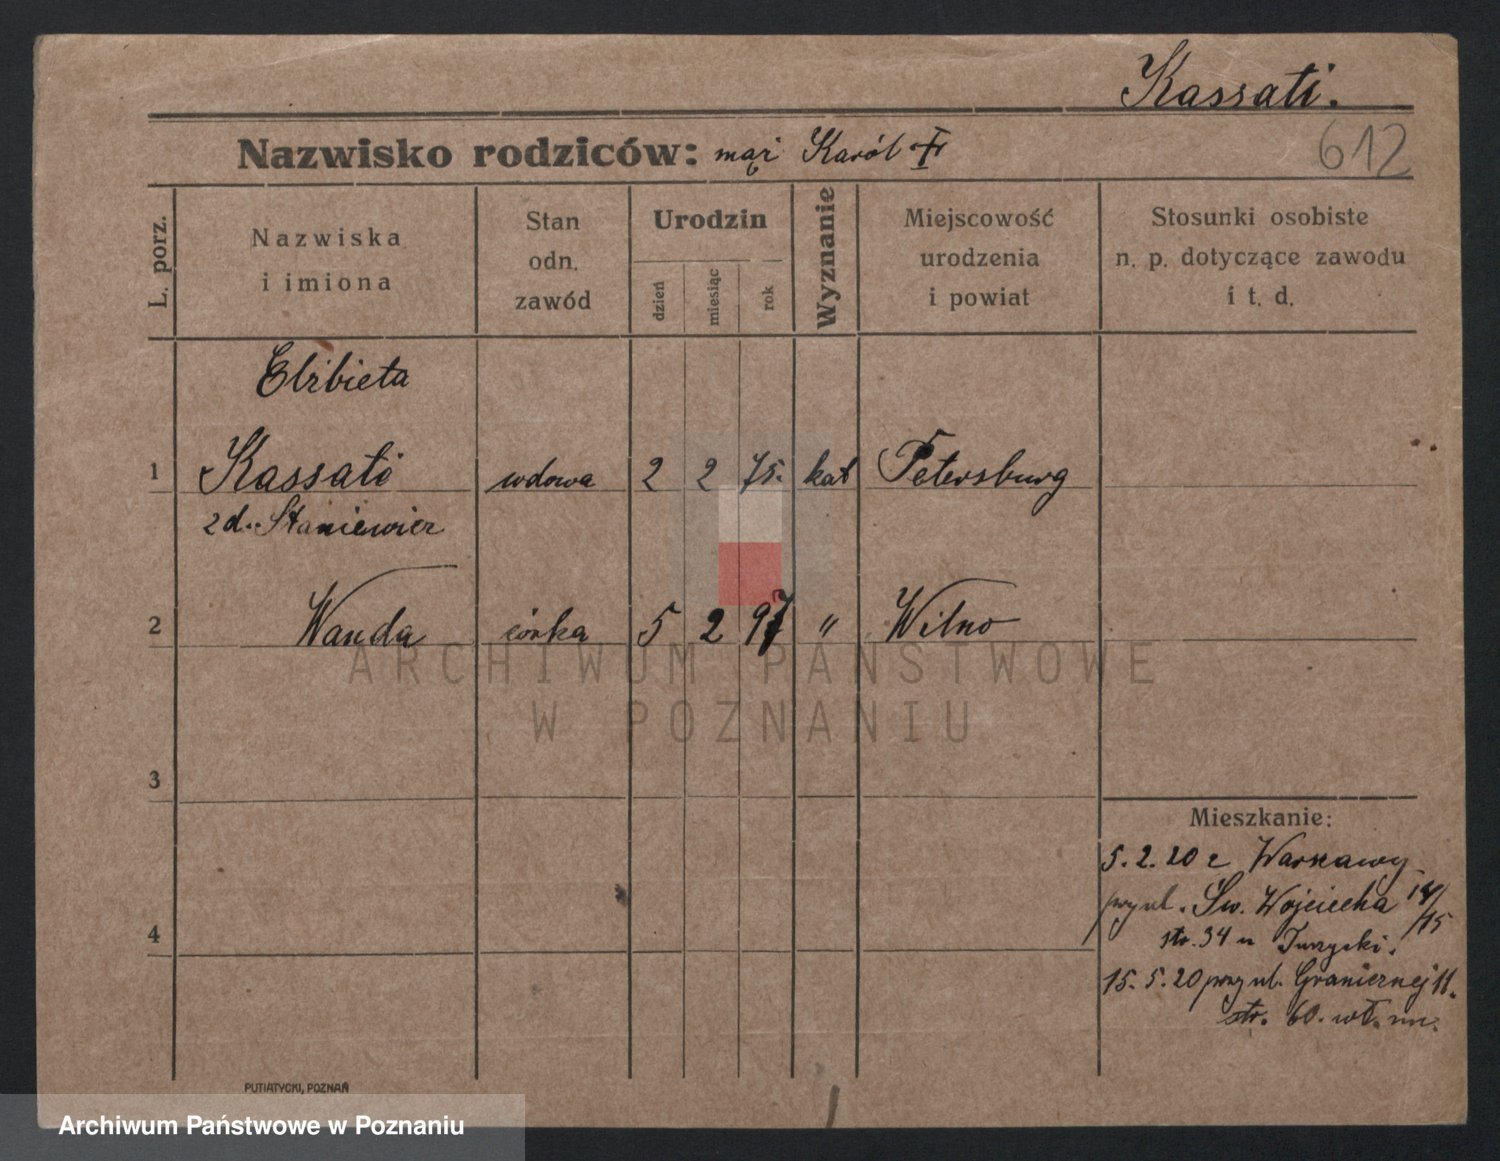 Kassati.
Nazwisko rodziców: mąż Karól
612
L. porz.
Nazwiska
i imiona
Stan
odn.
zawód
Urodzin
dzień
miesiąc
rok
Wyznanie
Miejscowość
urodzenia
i powiat
Stosunki osobiste
n. p. dotyczące zawodu
i t. d.
Elżbieta
1 Kassati wdowa 2 2 75. kat Petersburg
zd. Staniewicz
2 Wanda córka 5 2 97 " Wilno
ARCHIWUM PAŃSTWOWE
W POZNANIU
3
4
Mieszkanie:
5. 2. 20 z Warszawy
przy ul. Św. Wojciecha
str. 34 u
15. 5. 20 przy ul. Granicznej 11.
str. 60. wł. m.
PUTIATYCKI, POZNAŃ
Archiwum Państwowe w Poznaniu